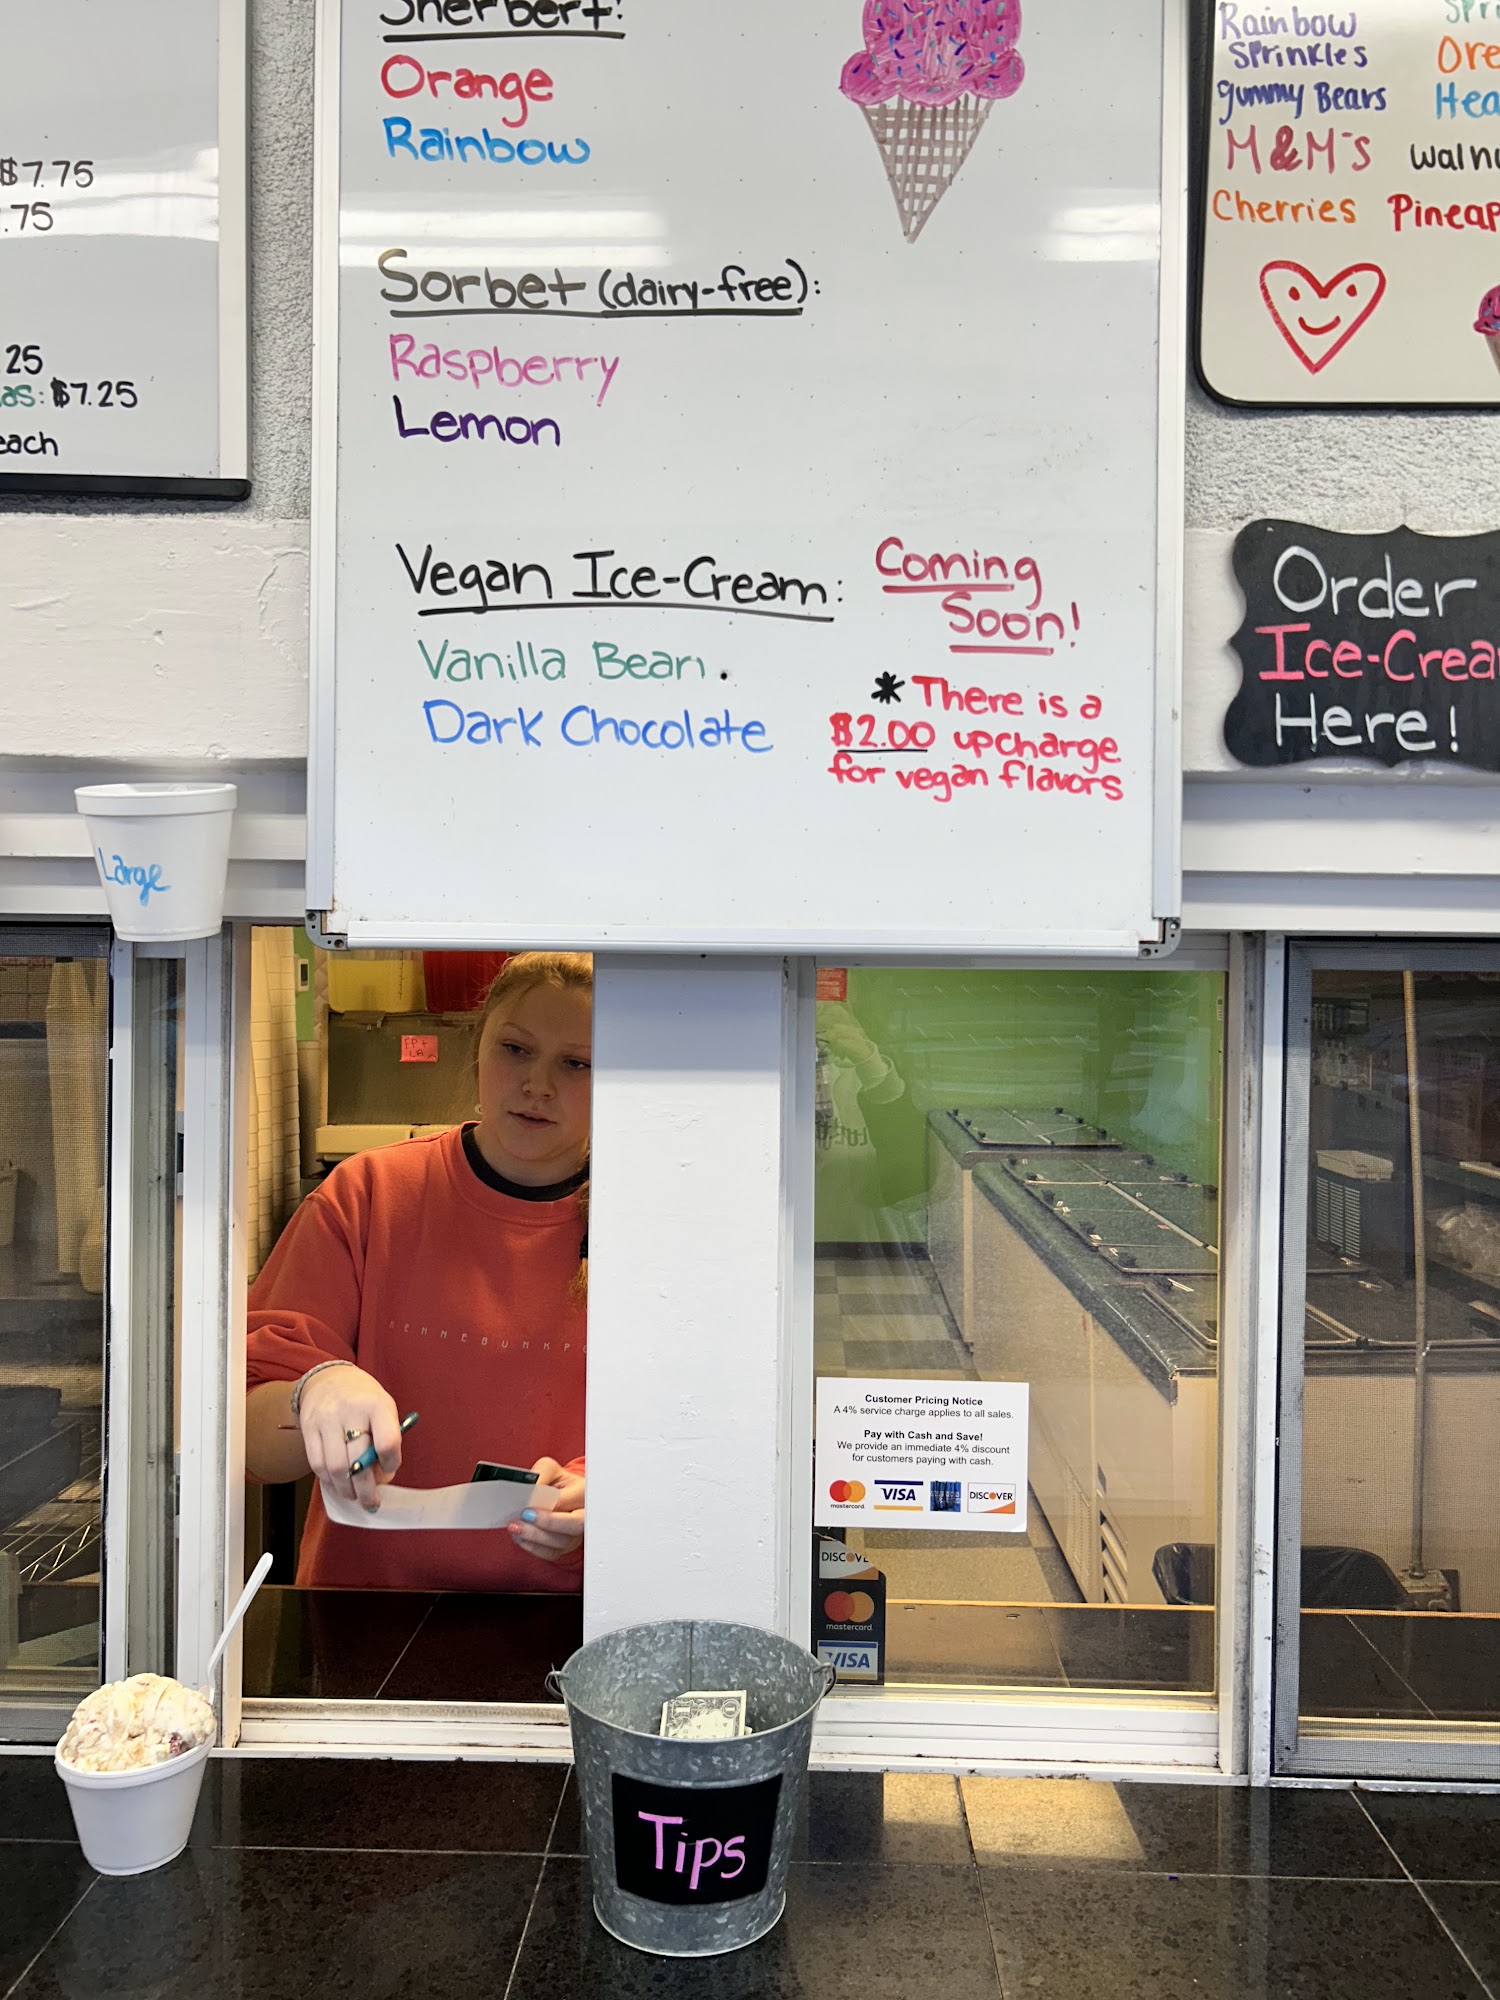 $7.75
.75
.25
as: $7.25
each
Sherbert:
Orange
Rainbow
Sorbet (dairy-free):
Raspberry
Lemon
Vegan Ice-Cream:
Coming
Soon!
Vanilla Bean.
Dark Chocolate
* There is a
$2.00 upcharge
for vegan flavors
Rainbow
Sprinkles
Gummy Bears
M&M's
Cherries
Spri
Ore
Hea
Waln
Pineap
Order
Ice-Crea
Here!
Large
KENNEBUNKPO
Customer Pricing Notice
A 4% service charge applies to all sales.
Pay with Cash and Save!
We provide an immediate 4% discount
for customers paying with cash.
mastercard
VISA
DISCOVER
DISCOVE
mastercard
VISA
Tips